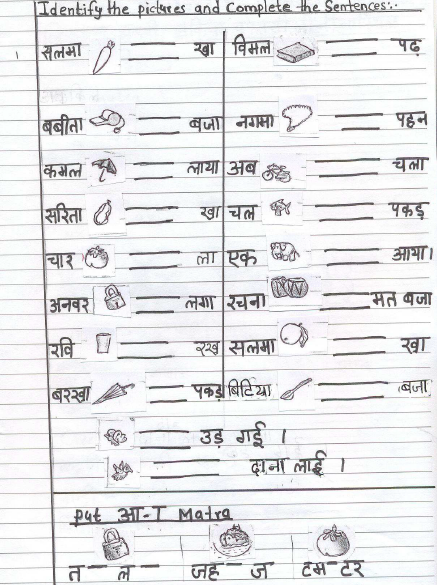 Identify the pictures and Complete the Sentences:-
सलमा ____ खा विमल ____ पढ़
बबीता ____ बजा नगमा ____ पहन
कमल ____ लाया अब ____ चला
सरिता ____ खा चल ____ पकड़
चार ____ ला एक ____ आया।
अनवर ____ लगा रचना ____ मत बजा
रवि ____ रख सलमा ____ खा
बरखा ____ पकड़ बिटिया ____ बजा
____ उड़ गई ।
____ दाना लाई ।
Put आ-ा Matra
त _ ल _ जह _ ज टम _ टर